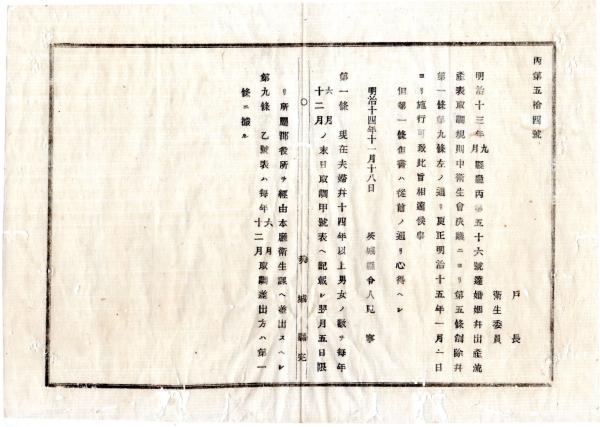 丙第五拾四號
戸長
衛生委員
明治十三年九月縣廳丙第五十六號達婚姻幷出產流
產表取調規則中衛生會決議ニヨリ第五條削除幷
第一條第九條左ノ通リ更正明治十五年一月一日
ヨリ施行可致此旨相達候事
但第一條但書ハ從前ノ通リ心得ヘシ
明治十四年十一月十八日 茨城縣令人見寧
第一條 現在夫婦幷十四年以上男女ノ數ヲ每年
六月十二月ノ末日取調甲號表ヘ記載シ翌月五日限
リ所轄郡役所ヲ經由本廳衛生課ヘ差出スヘシ
第九條 乙號表ハ每年六月十二月取調差出方ハ第一
條ニ據ル
茨城縣